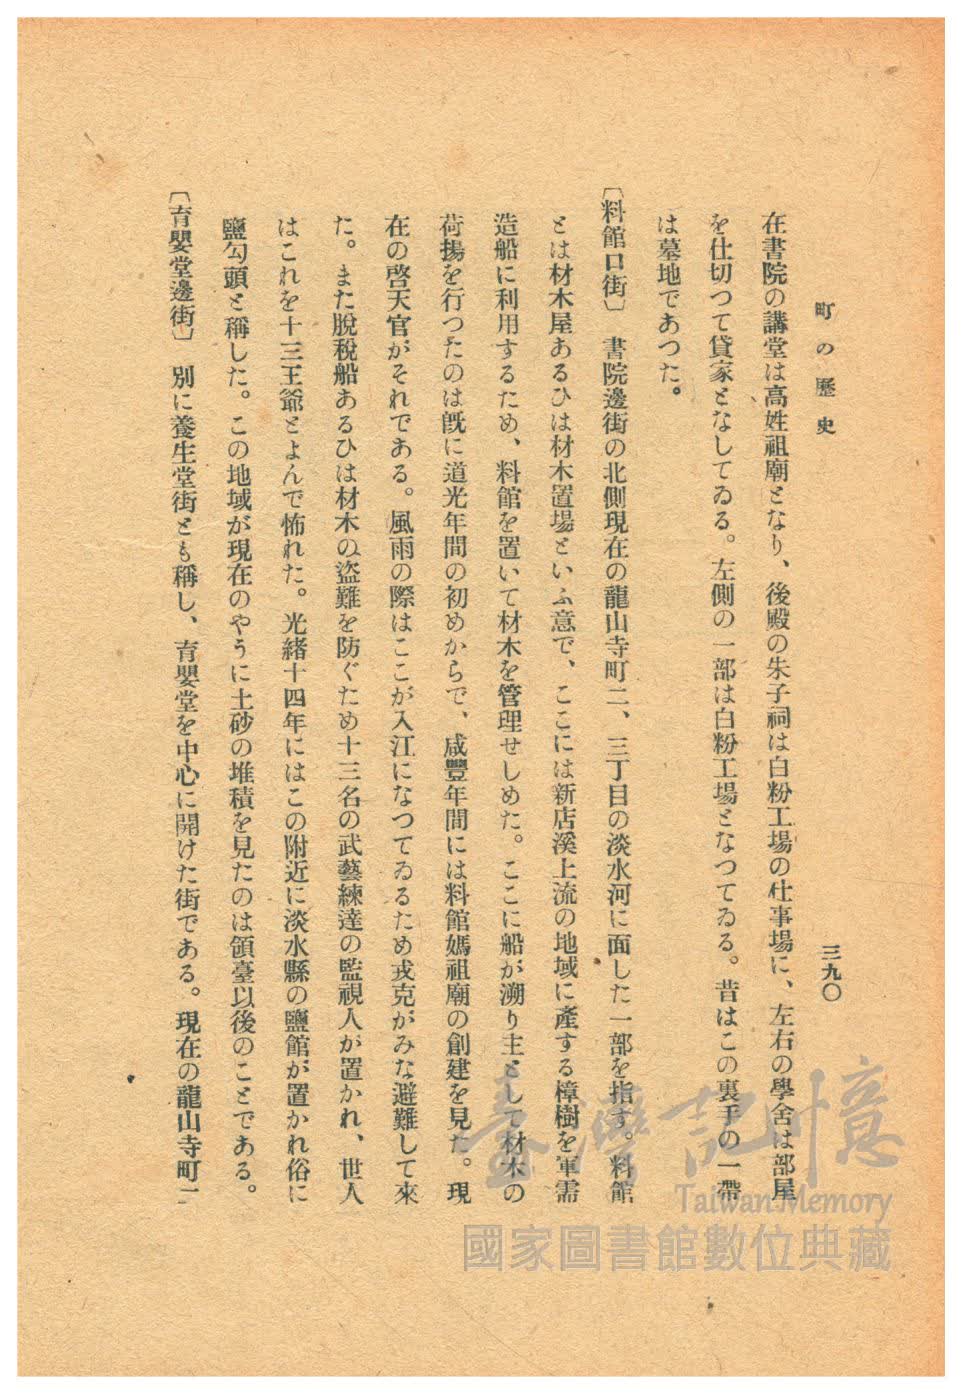 町の歷史
三九〇
在書院の講堂は高姓祖廟となり、後殿の朱子祠は白粉工場の仕事場に、左右の學舍は部屋
を仕切つて貸家となしてゐる。左側の一部は白粉工場となつてゐる。昔はこの裏手の一帶
は墓地であつた。
〔料館口街〕 書院邊街の北側現在の龍山寺町二、三丁目の淡水河に面した一部を指す。料館
とは材木屋あるひは材木置場といふ意で、ここには新店溪上流の地域に產する樟樹を軍需
造船に利用するため、料館を置いて材木を管理せしめた。ここに船が溯り主として材木の
荷揚を行つたのは既に道光年間の初めからで、咸豐年間には料館媽祖廟の創建を見た。現
在の啓天宮がそれである。風雨の際はここが入江になつてゐるため戎克がみな避難して來
た。また脫稅船あるひは材木の盜難を防ぐため十三名の武藝練達の監視人が置かれ、世人
はこれを十三王爺とよんで怖れた。光緒十四年にはこの附近に淡水縣の鹽館が置かれ俗に
鹽勾頭と稱した。この地域が現在のやうに土砂の堆積を見たのは領臺以後のことである。
〔育嬰堂邊街〕 別に養生堂街とも稱し、育嬰堂を中心に開けた街である。現在の龍山寺町一
臺灣記憶
Taiwan Memory
國家圖書館數位典藏